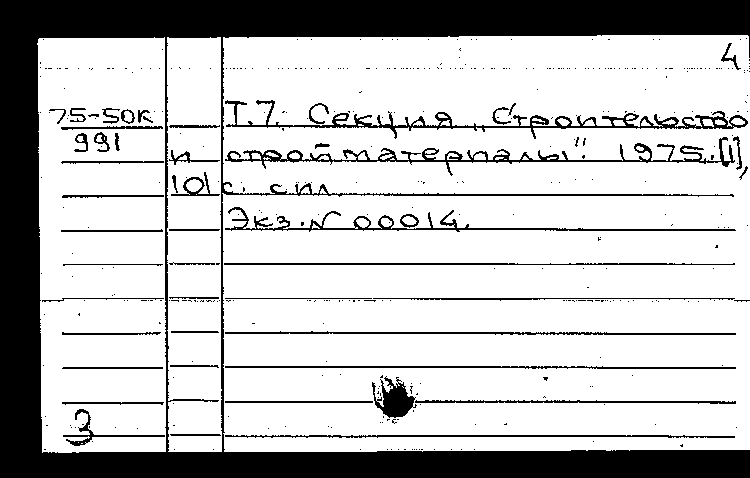 4
75-50К Т.7. Секция „Строительство
991 и стройматериалы". 1975. [1],
101 с. с ил.
Экз. N 00014.
3